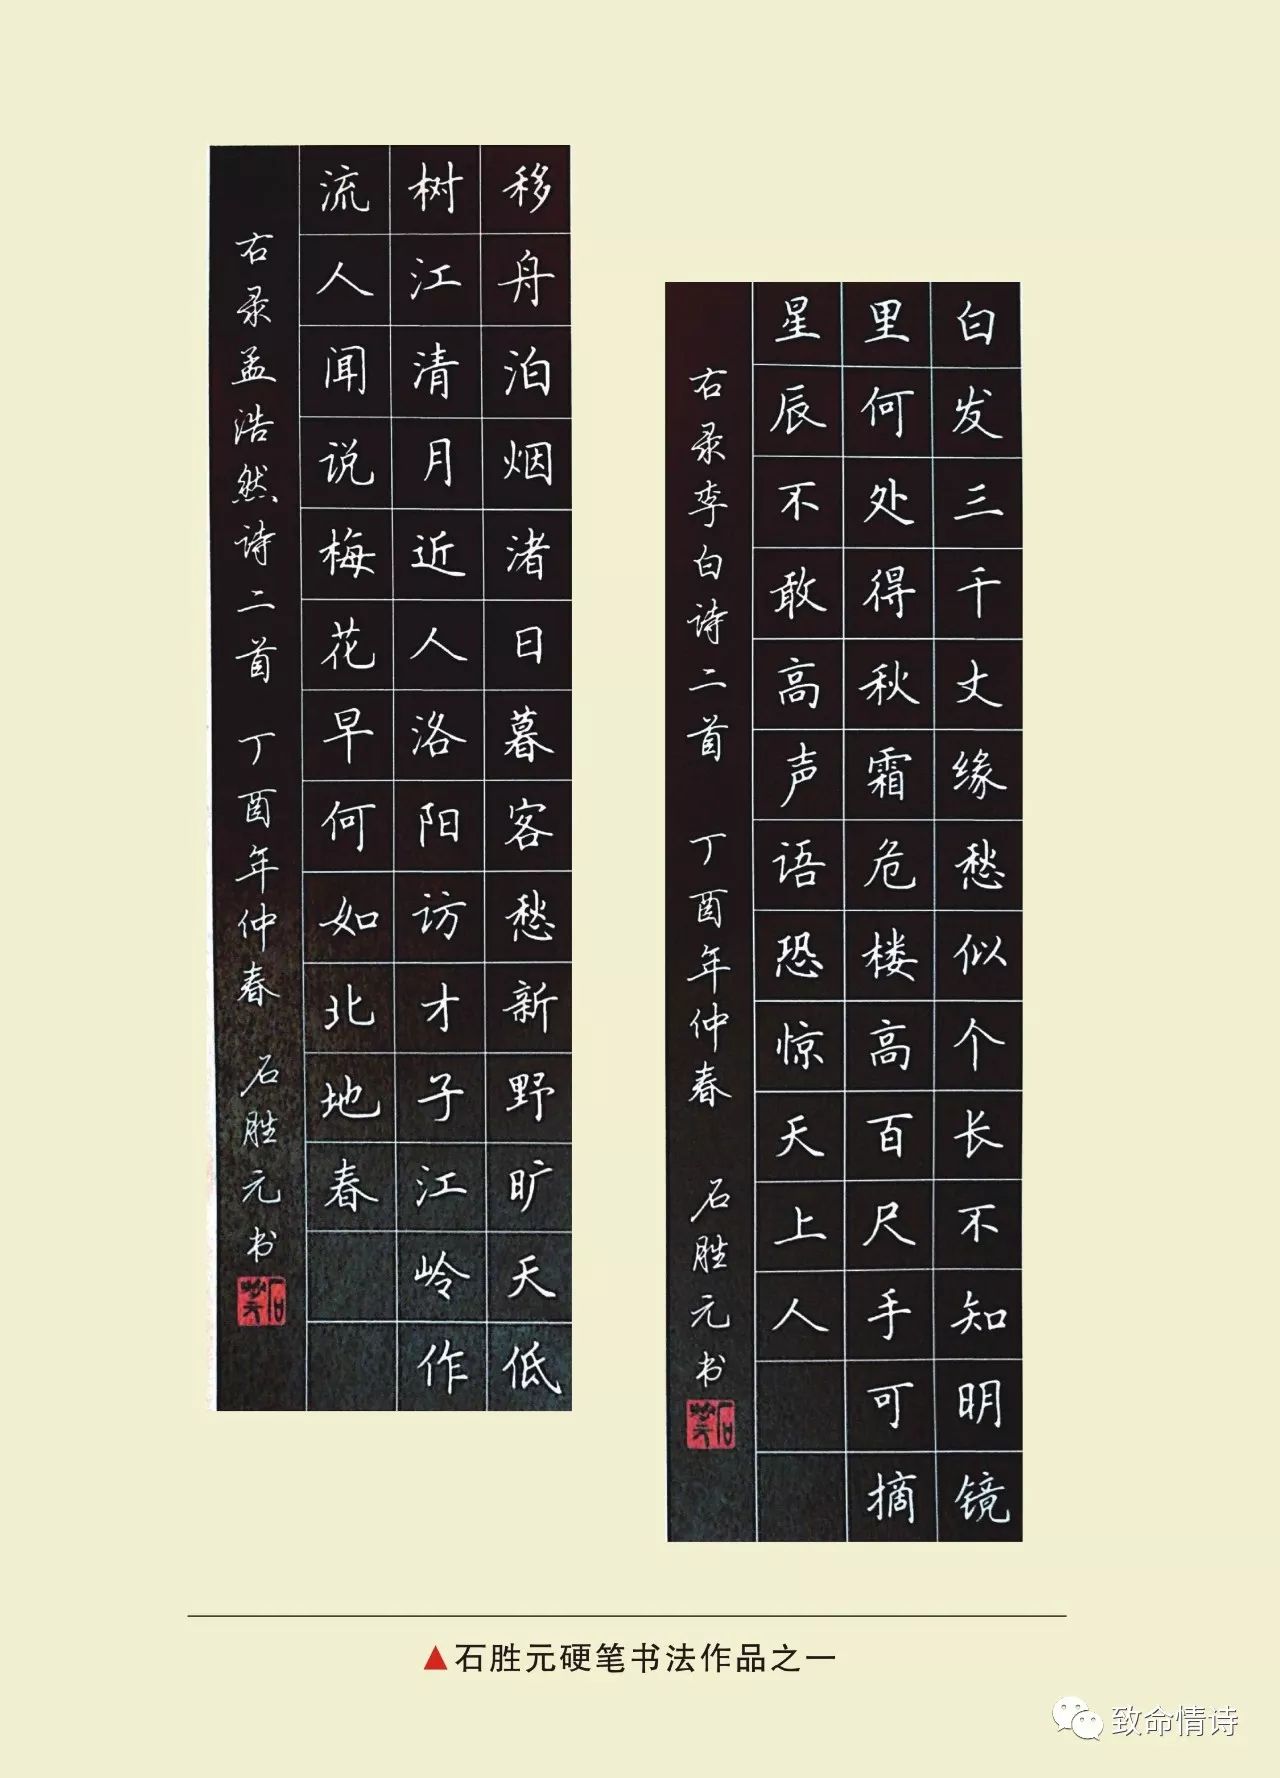 白发三千丈缘愁似个长不知明镜
里何处得秋霜危楼高百尺手可摘
星辰不敢高声语恐惊天上人
右录李白诗二首 丁酉年仲春 石胜元书
移舟泊烟渚日暮客愁新野旷天低
树江清月近人洛阳访才子江岭作
流人闻说梅花早何如北地春
右录孟浩然诗二首 丁酉年仲春 石胜元书
▲石胜元硬笔书法作品之一
致命情诗